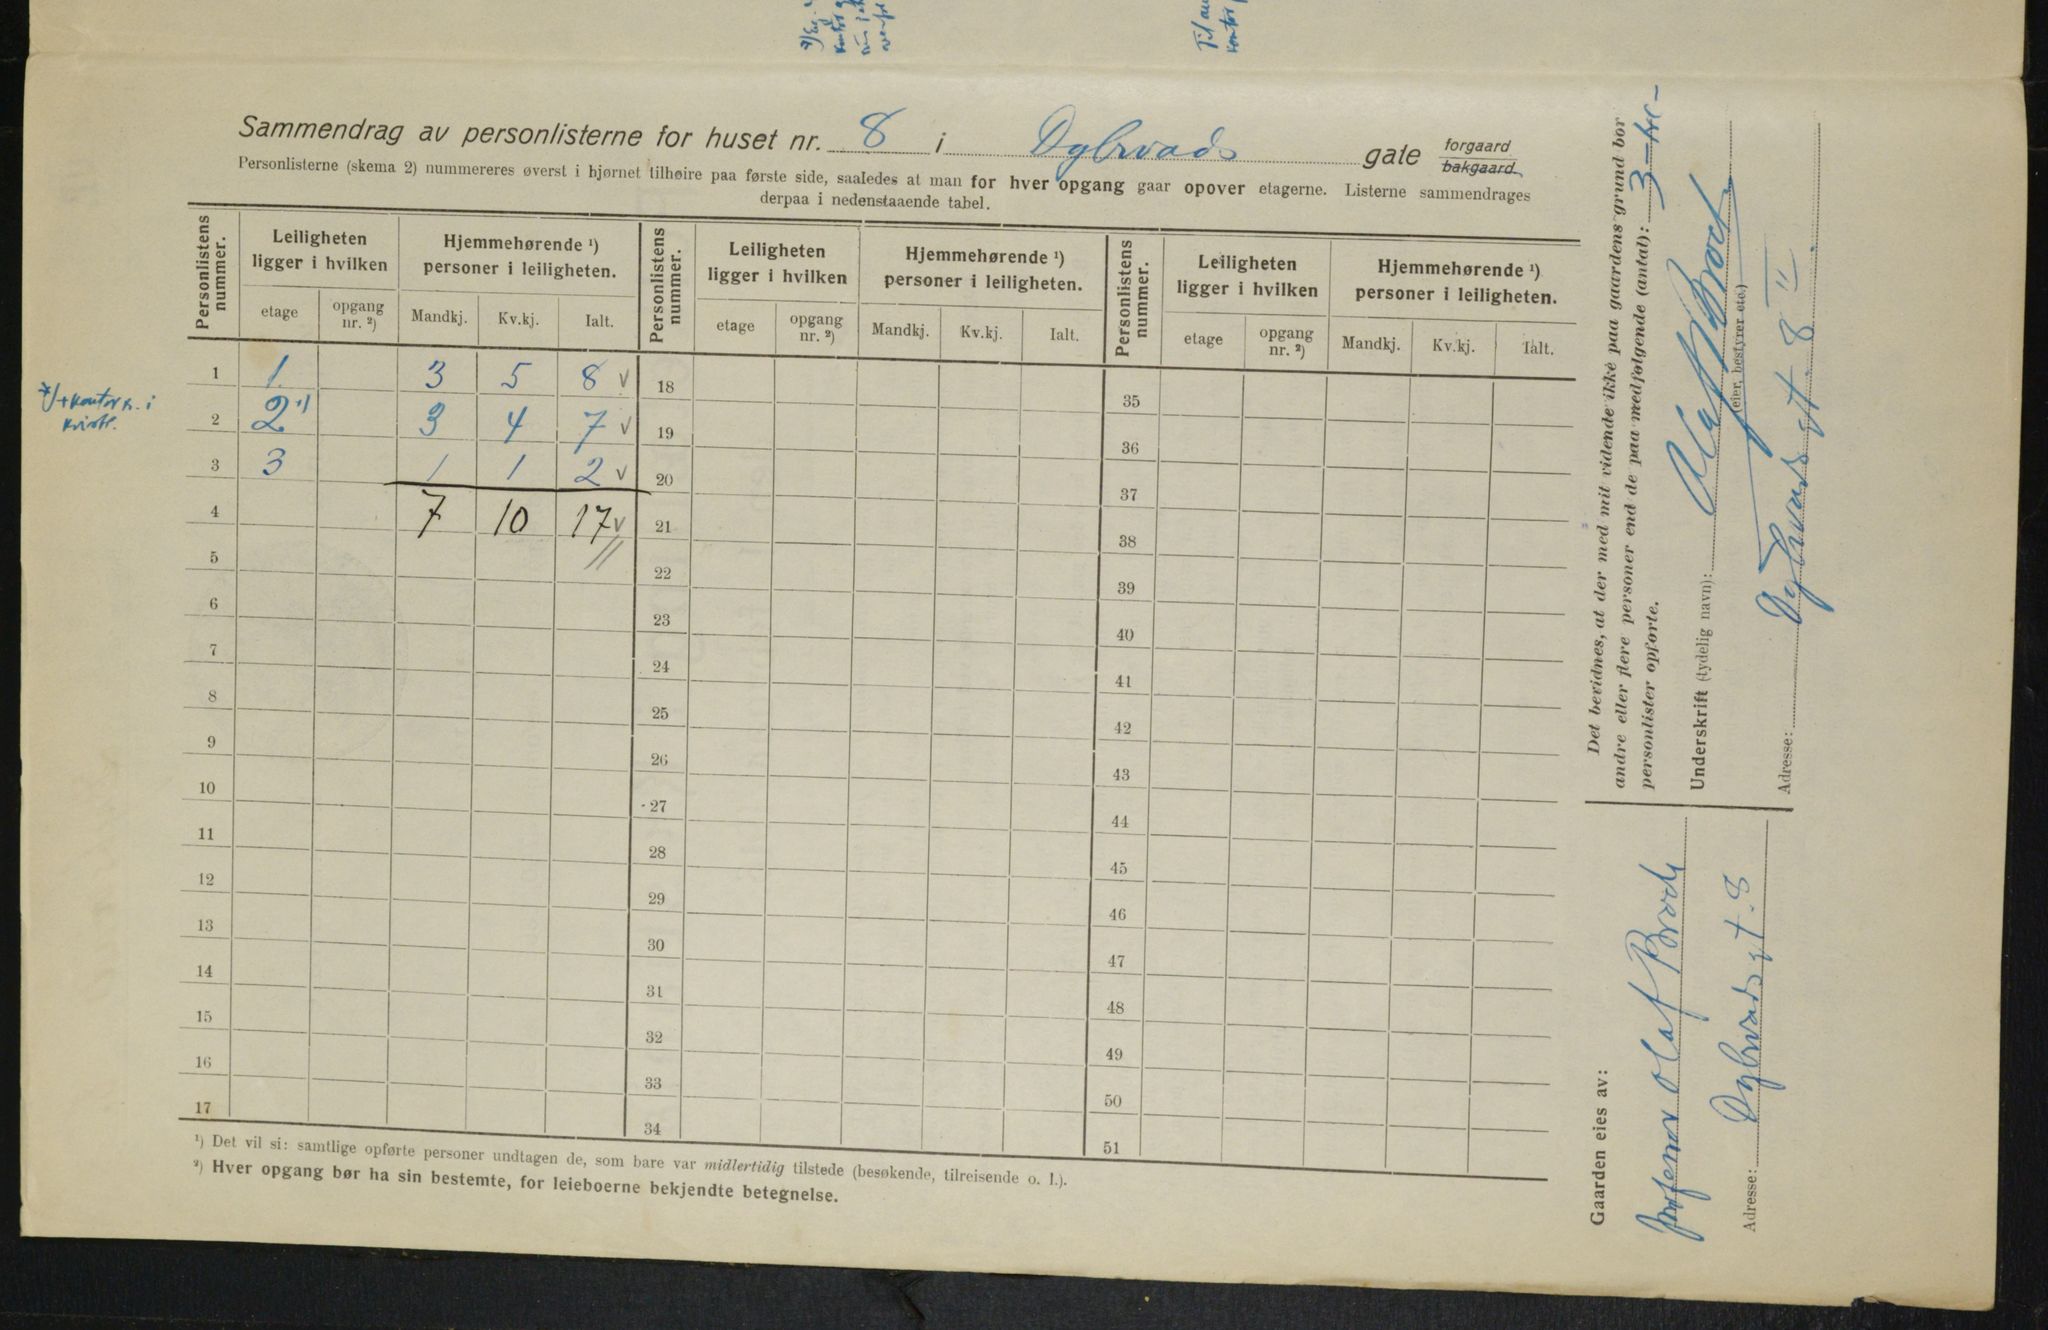 Sammendrag av personlisterne for huset nr. 8 i Dybwads gate forgaard bakgaard.
Personlisterne (skema 2) nummereres øverst i hjørnet tilhøire paa første side, saaledes at man for hver opgang gaar opover etagerne. Listerne sammendrages
derpaa i nedenstaaende tabel.
Personlistens nummer. Leiligheten ligger i hvilken Hjemmehørende ¹) personer i leiligheten. Personlistens nummer. Leiligheten ligger i hvilken Hjemmehørende ¹) personer i leiligheten. Personlistens nummer. Leiligheten ligger i hvilken Hjemmehørende ¹) personer i leiligheten.
etage opgang nr. ²) Mandkj. Kv.kj. Ialt. etage opgang nr. ²) Mandkj. Kv.kj. Ialt. etage opgang nr. ²) Mandkj. Kv.kj. Ialt.
1 1. 3 5 8 v 18 35
*) + kontor i
2 2 *) 3 4 7 v 19 36
3 3 1 1 2 v 20 37
4 7 10 17 v 21 38
5 22 39
6 23 40
7 24 41
8 25 42
9 26 43
10 27 44
11 28 45
12 29 46
13 30 47
14 31 48
15 32 49
16 33 50
17 34 51
¹) Det vil si: samtlige opførte personer undtagen de, som bare var midlertidig tilstede (besøkende, tilreisende o. l.).
²) Hver opgang bør ha sin bestemte, for leieboerne bekjendte betegnelse.
Det bevidnes, at der med mit vidende ikke paa gaardens grund bor
andre eller flere personer end de paa medfølgende (antal): 3 – tre –
personlister opførte.
Underskrift (tydelig navn): Olaf Broch
(eier, bestyrer etc.)
Adresse: Dybwads gt. 8 III.
Gaarden eies av:
professor Olaf Broch
Adresse: Dybwads gt. 8